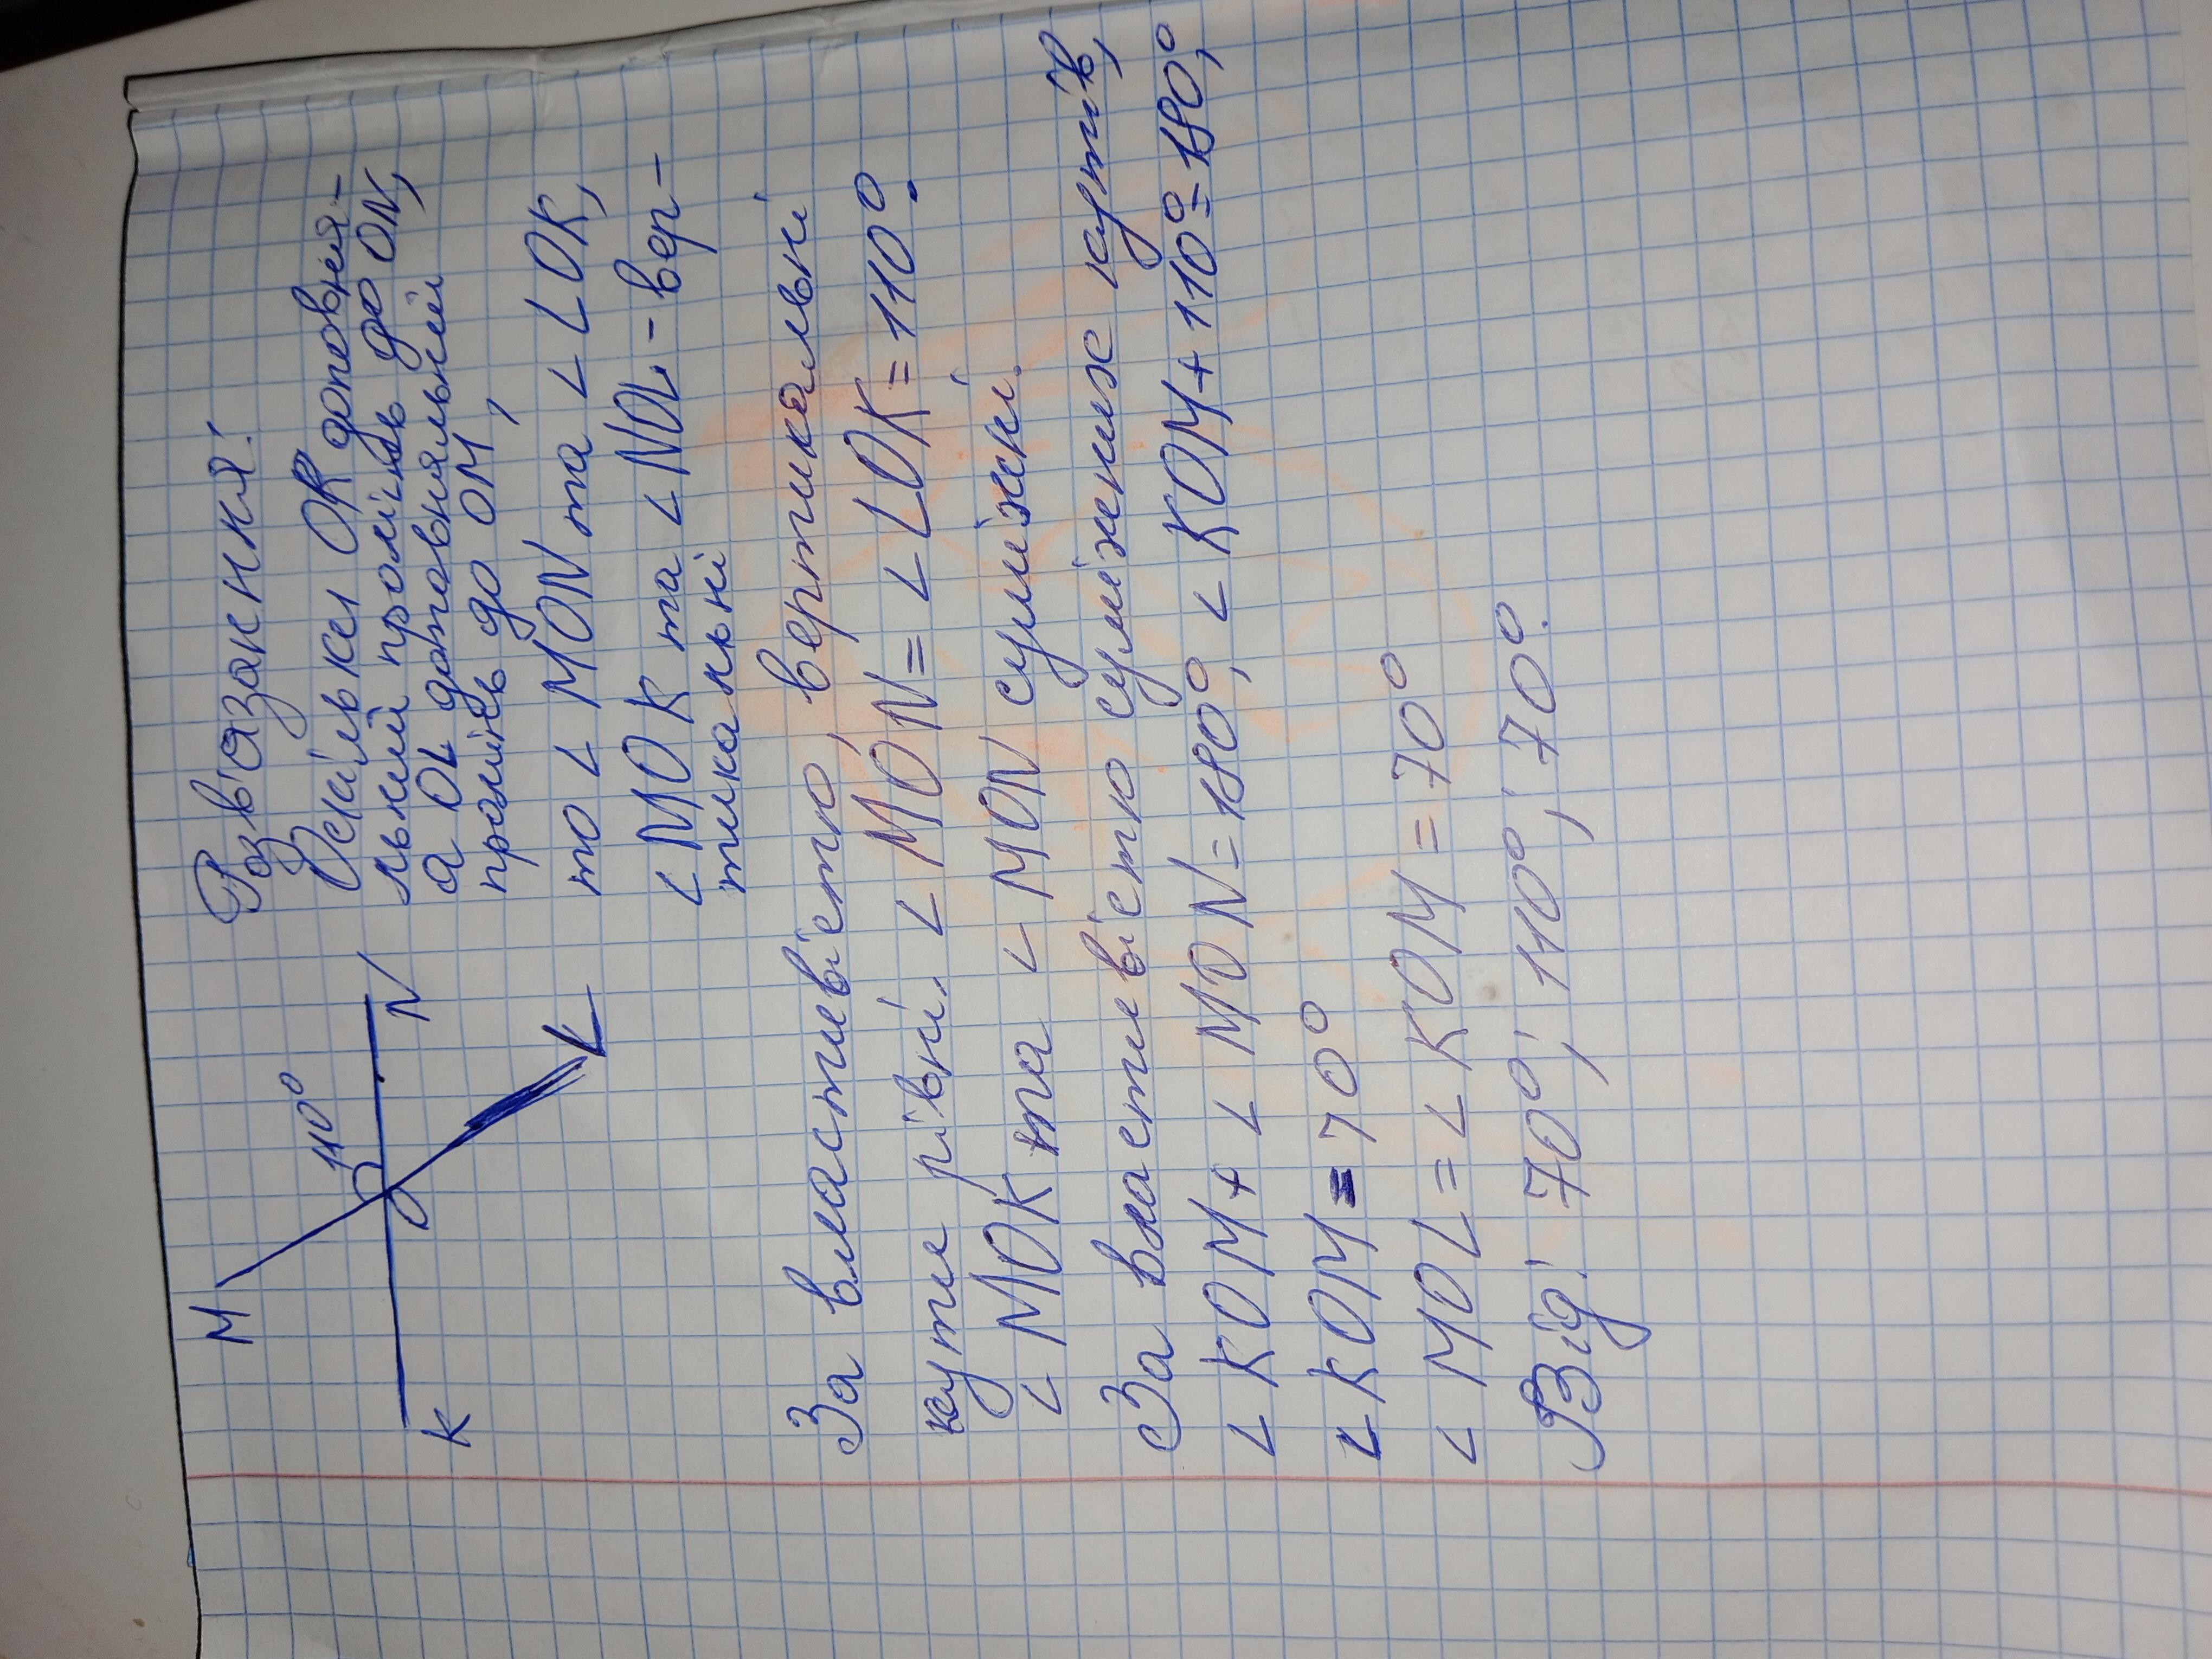 M
110°
O
K
N
L
Розв'язання:
Оскільки OK доповня-
льний промінь до ON,
а OL доповняльний
промінь до OM,
то ∠ MON та ∠ LOK,
∠ MOK та ∠ NOL - вер-
тикальні
За властивістю, вертикальні
кути рівні. ∠ MON = ∠ LOK = 110°.
∠ MOK та ∠ MON суміжні.
За властивістю суміжних кутів,
∠ KOM + ∠ MON = 180°, ∠ KOM + 110° = 180°,
∠ KOM = 70°
∠ MOL = ∠ KOM = 70°
Від: 70°; 110°; 70°.